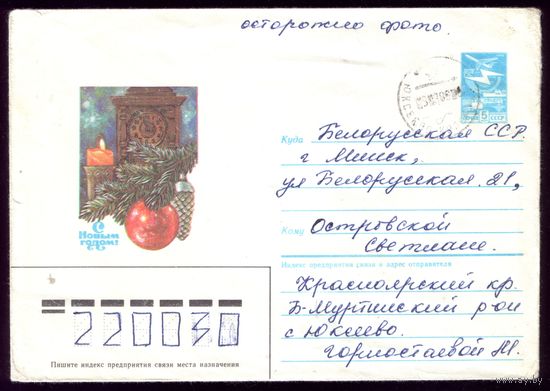 осторожно фото.
ПОЧТА 5к СССР
Куда Белорусская ССР.
г Минск,
ул Белорусская. 21,
Кому Островской
Светлане.
Индекс предприятия связи и адрес отправителя
Красноярский кр.
Б-Муртинский р он
с Юксеево.
Гормостаевой М.
С
Новым
годом!
220030
Пишите индекс предприятия связи места назначения
www.ay.by